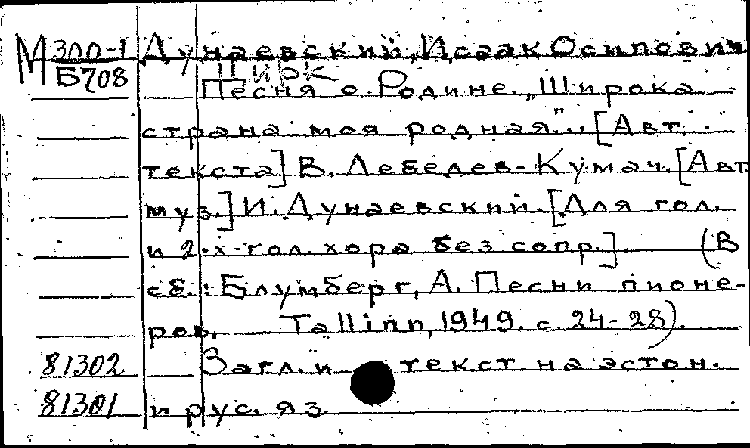 М 300-1 Дунаевский, Исаак Осипович
Б708 Цирк
Песня о Родине. „Широка
страна моя родная".. [Авт.
текста] В. Лебедев-Кумач. [Авт.
муз.] И. Дунаевский. [Для гол.
и 2-х-гол. хора без сопр.]. (В
сб.: Блумберг, А. Песни пионе-
ров. Tallinn, 1949. с 24-28).
81302 Загл. и текст на эстон.
81301 и рус. яз.